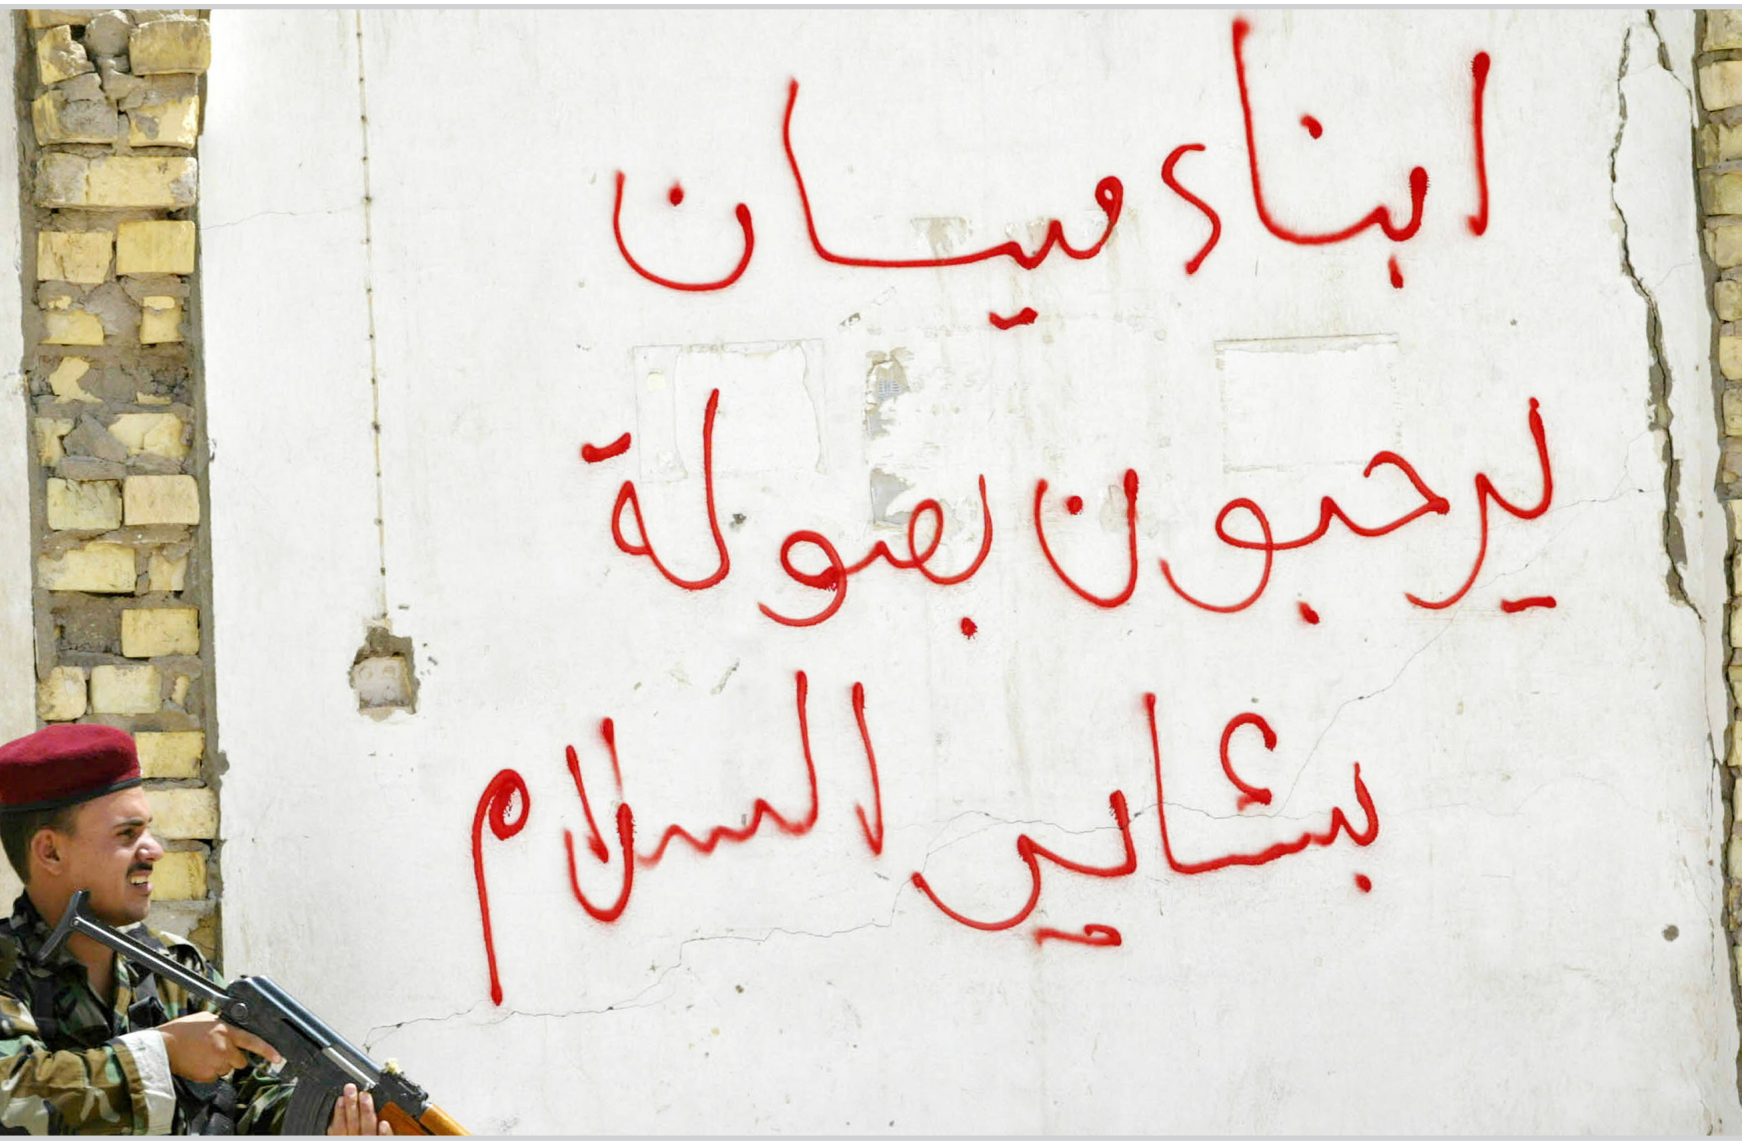 ابناء ميسان
يرحبون بصولة
بشاير السلام